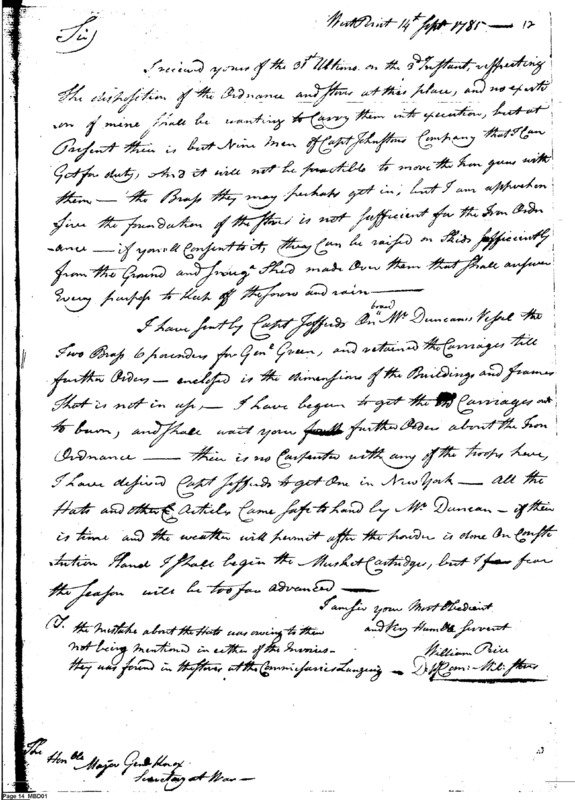 West Point 14th Sept 1785 — 12
Sir,
I recieved yours of the 31st Ultimo. on the 3d Instant, respecting
the disposition of the Ordnance and Stores at this place, and no exerti
on of mine Shall be wanting to Carry them into execution, but at
Present their is but Nine Men of Capt Johnstons Company that I Can
Get for duty, And it will not be practible to move the Iron guns with
them — the Brass they may perhaps get in, but I am apprehen
sive the foundation of the Store is not sufficient for the Iron Ordn
-ance — if you'll Consent to it, they Can be raised on Skids sufficiently
from the Ground and Snug Shed made Over them that Shall answer
Every purpose to Keep off the Snow and rain —
I have sent by Capt Jeffrids On board Mr Duncans Vessel the
Two Brass 6 pounders for Genl Green, and retained the Carriages till
further Orders — enclosed is the dimensions of the Buildings and frames
That is not in up, — I have begun to get the Carriages out
to burn, and Shall wait your further Orders about the Iron
Ordnance — their is no Carpenter with any of the troops here,
I have desired Capt Jeffrids to get One in New York — All the
Hats and other Articles Came Safe to hand by Mr Duncan — if their
is time and the weather will permit after the powder is done On Consti
tution Island I Shall begin the Musket Cartridge, but I fear
the Season will be too far advanced —
I am Sir your Most Obedient
and Very Humble Servent
William Price
D Com: Mil: Stores
the Mistake about the Hats was owing to their
not being mentioned in either of the Invoices —
they was found in the Stores at the Commissaries
The Honble Major Genl Knox
Secretary at War —
Page 14 MBD01